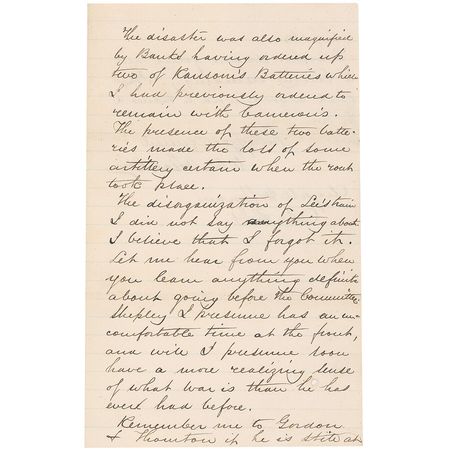 The disaster was also magnified
by Banks having ordered up
two of Ransom's Batteries which
I had previously ordered to
remain with Cameron's.
The presence of these two batte-
ries made the loss of some
artillery certain when the rout
took place.
The disorganization of Lee's train
I did not say anything about
I believe that I forgot it.
Let me hear from you when
you learn anything definite
about going before the Committee.
Shepley I presume has an un-
comfortable time at the front,
and will I presume soon
have a more realizing sense
of what war is than he has
ever had before.
Remember me to Gordon
& Thornton if he is still at